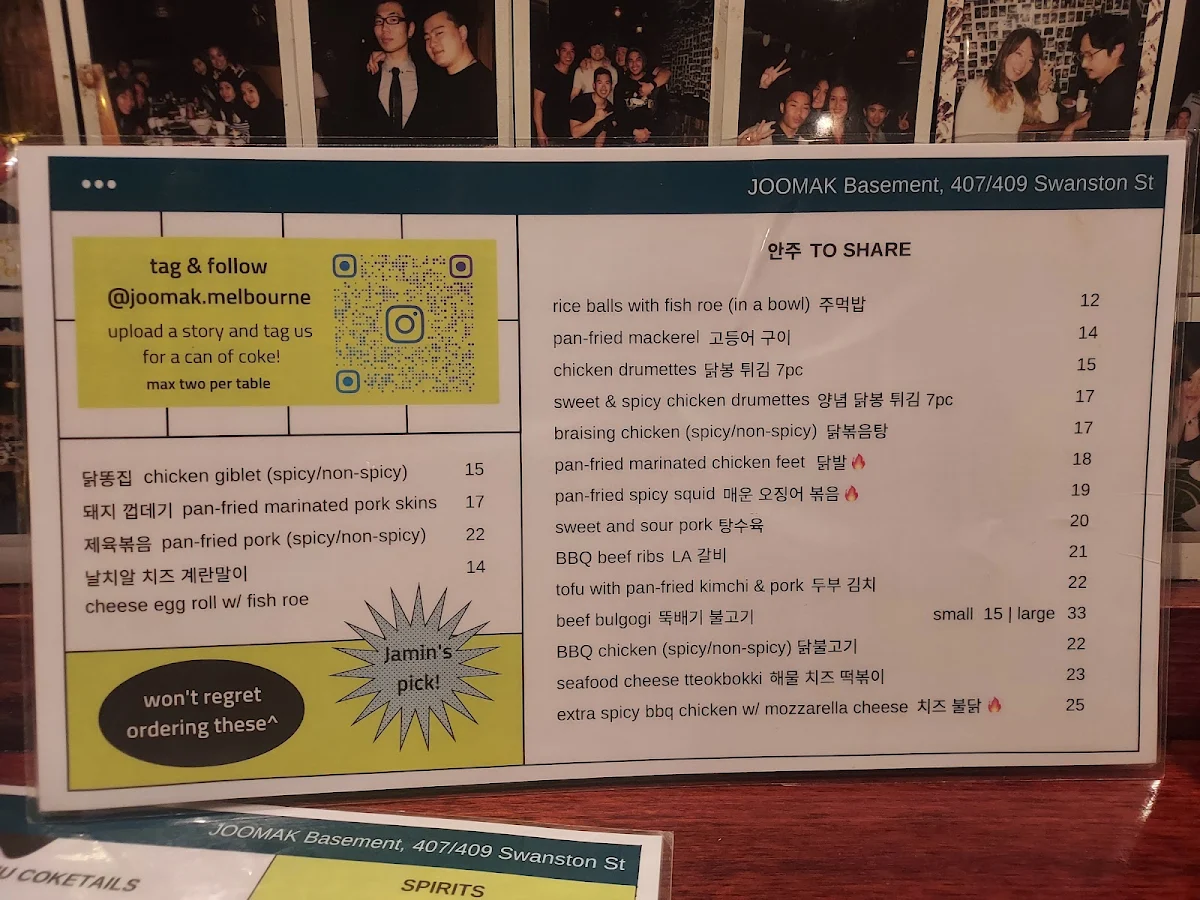 JOOMAK Basement, 407/409 Swanston St
tag & follow
@joomak.melbourne
upload a story and tag us
for a can of coke!
max two per table
닭똥집 chicken giblet (spicy/non-spicy) 15
돼지 껍데기 pan-fried marinated pork skins 17
제육볶음 pan-fried pork (spicy/non-spicy) 22
날치알 치즈 계란말이 14
cheese egg roll w/ fish roe
Jamin's
pick!
won't regret
ordering these^
안주 TO SHARE
rice balls with fish roe (in a bowl) 주먹밥 12
pan-fried mackerel 고등어 구이 14
chicken drumettes 닭봉 튀김 7pc 15
sweet & spicy chicken drumettes 양념 닭봉 튀김 7pc 17
braising chicken (spicy/non-spicy) 닭볶음탕 17
pan-fried marinated chicken feet 닭발🔥 18
pan-fried spicy squid 매운 오징어 볶음🔥 19
sweet and sour pork 탕수육 20
BBQ beef ribs LA 갈비 21
tofu with pan-fried kimchi & pork 두부 김치 22
beef bulgogi 뚝배기 불고기 small 15 | large 33
BBQ chicken (spicy/non-spicy) 닭불고기 22
seafood cheese tteokbokki 해물 치즈 떡볶이 23
extra spicy bbq chicken w/ mozzarella cheese 치즈 불닭🔥 25
JOOMAK Basement, 407/409 Swanston St
COKETAILS
SPIRITS